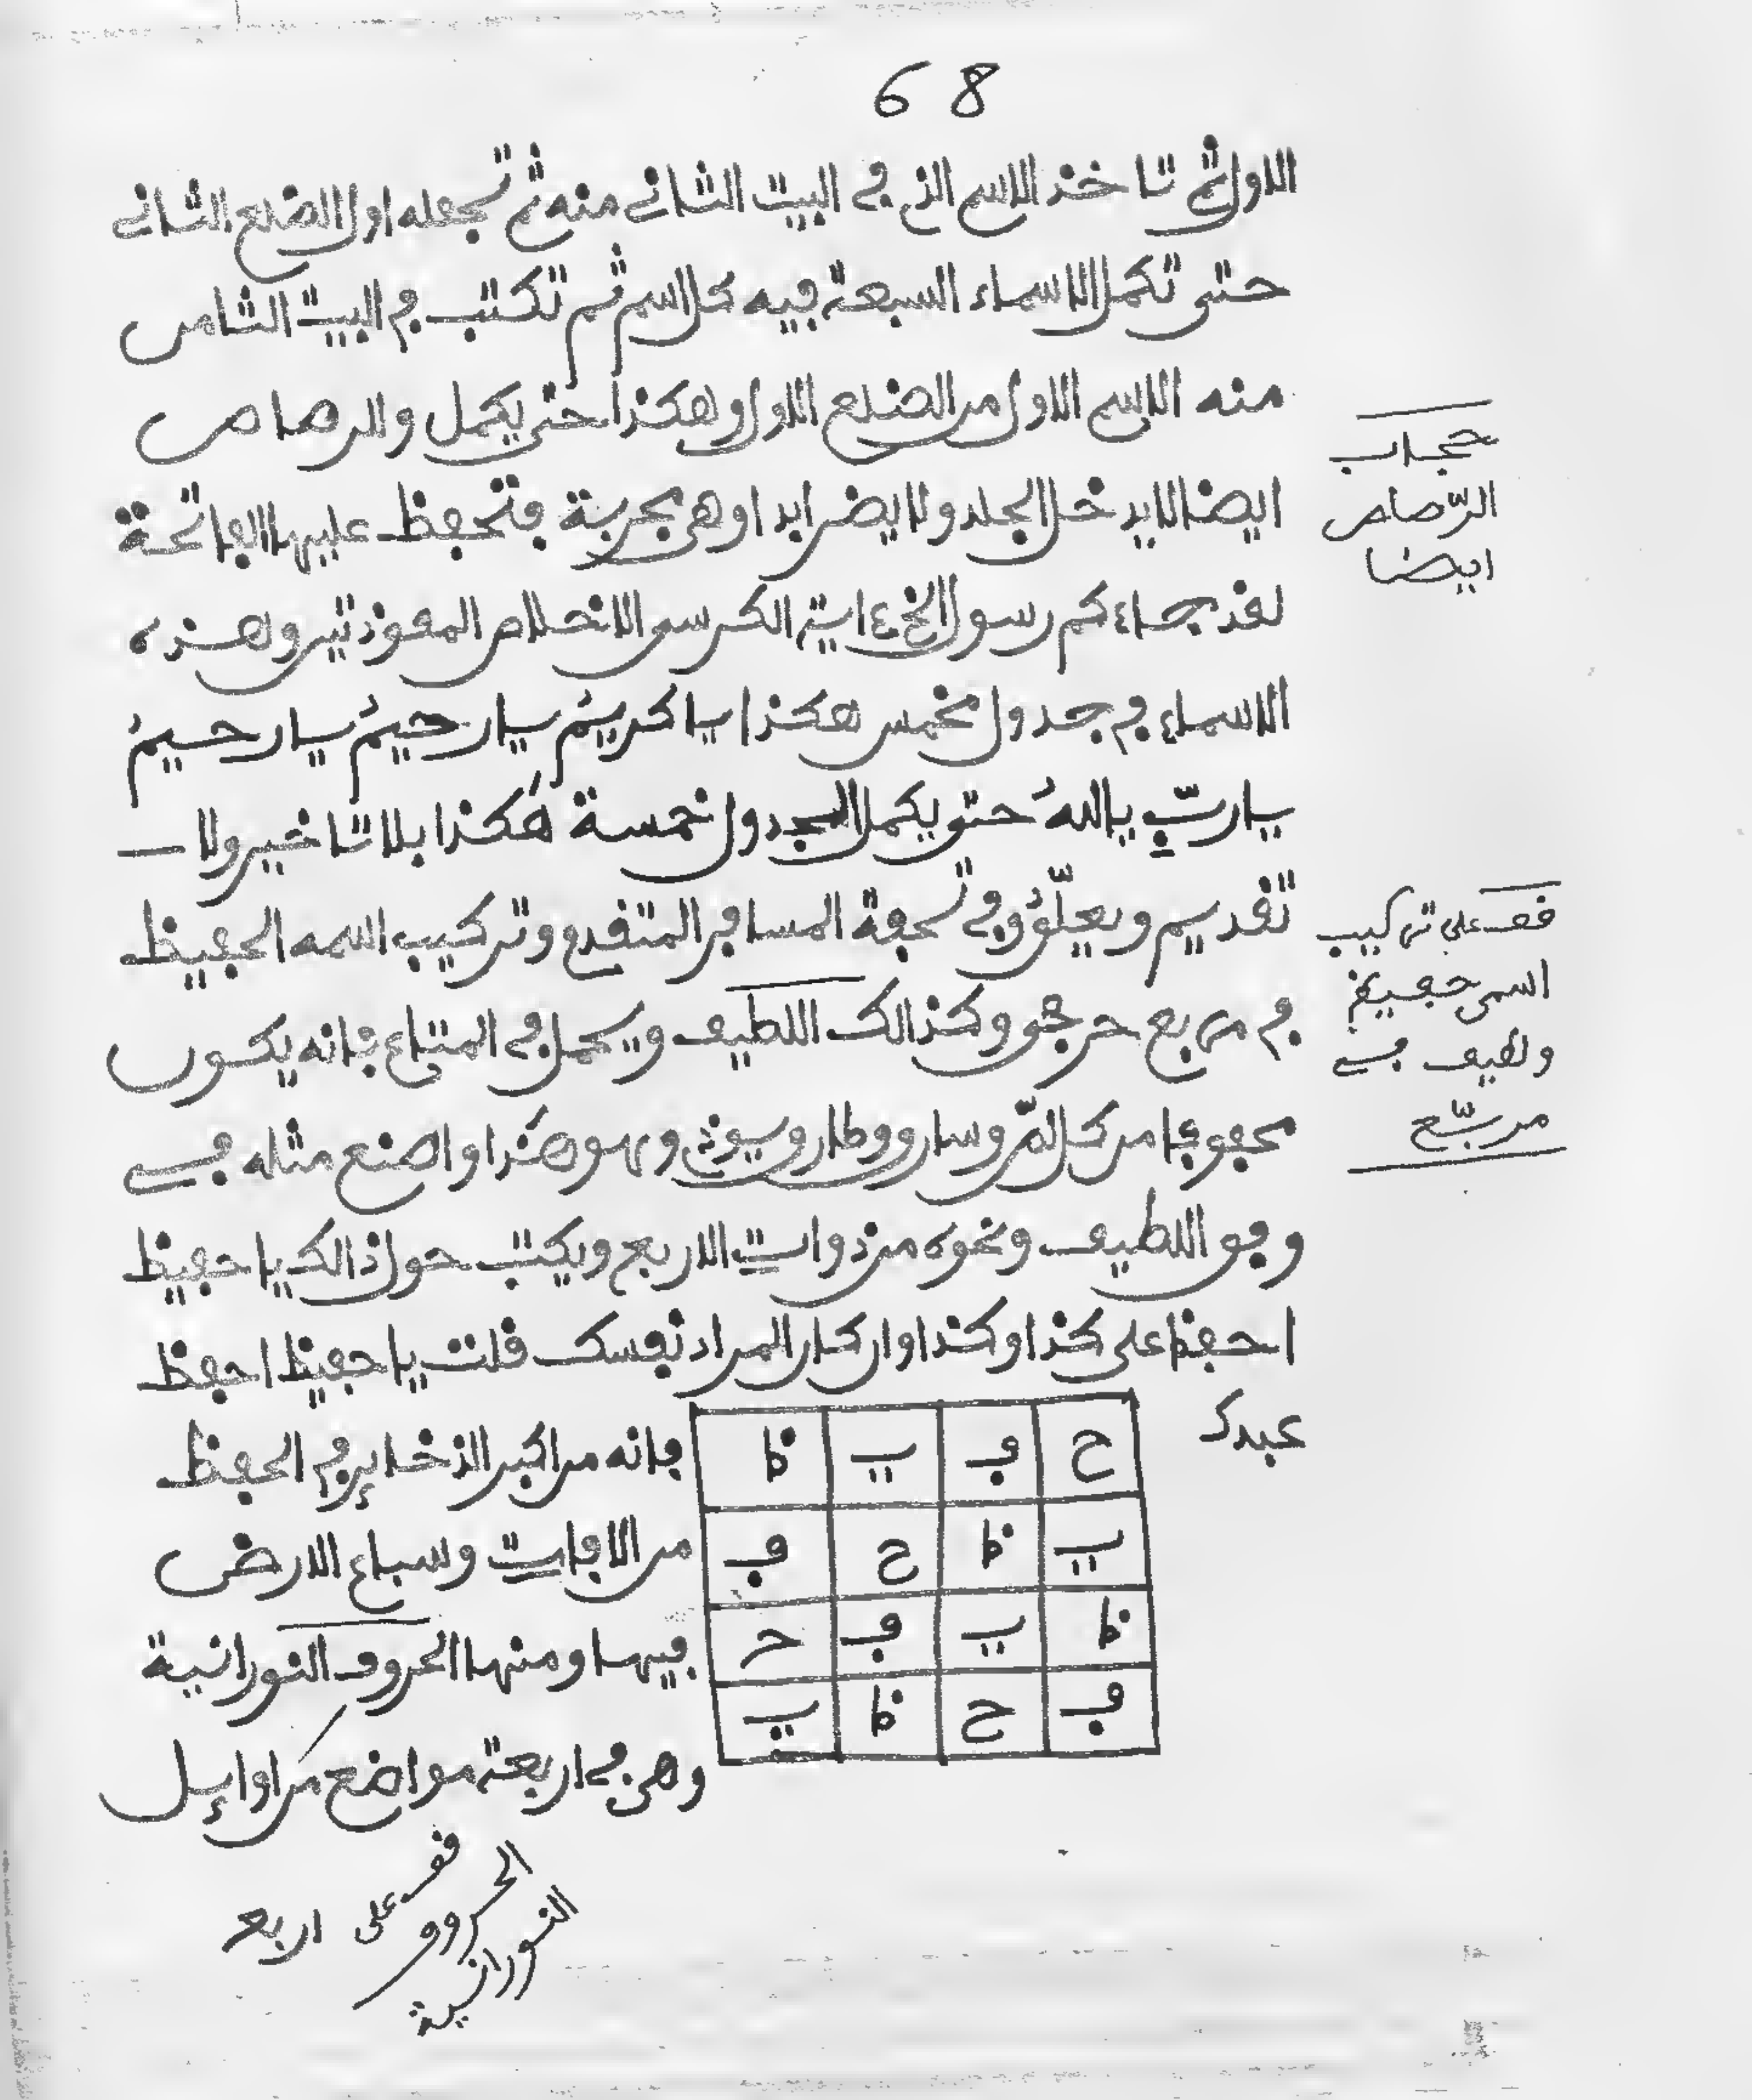 68
الاول ثم تاخذ الاسم الذي في البيت الثاني منه ثم تجعله اول الضلع الثاني
حتى تكمل الاسماء السبعة فيه كل اسم ثم تكتب في البيت الثامن
منه الاسم الاول من الضلع الاول وهكذا حتى يكمل والرصاص
ايضا لا يدخل الجلد ولا يضر ابدا وهي مجربة فتحفظ عليها الفاتحة
لقد جاءكم رسول الخ ءاية الكرسى الاخلاص المعوذتين وهذه
الاسماء في جدول مخمس هكذا يا كريمُ يا رحيمُ يا رحيمُ
يا ربّ يا اللهُ حتى يكمل الجدول خمسة هَكذا بلا تاخير ولا
تقديم ويعلّق وفي تحفة المسافر المتقدم وتركيب اسمه الحفيظ
في مربع حرجي وكذالك اللطيف ويحمل في المتاع فانه يكون
محفوظا من كل لصّ وسارق وطارق وسوء وهو هَكذا واصنع مثله في
وفق اللطيف ونحوه من ذوات الاربع ويكتب حول ذالك يا حفيظ
احفظ على كذا وكذا وان كان المراد نفسك قلت يا حفيظ احفظ
عبدك
ح ف ي ظ
ي ظ ح ف
ظ ي ف ح
ف ح ظ ي
فانه من اكبر الذخاير في الحفظ
من الافات وسباع الارض
فيها ومنها الحروف النورانية
وهي في اربعة مواضع من اوايل
حجاب
الرّصاص
ايضا
قف على تركيب
اسمى حفيظ
ولطيف في
مربّع
قف على اربع
الحروف
النورانية